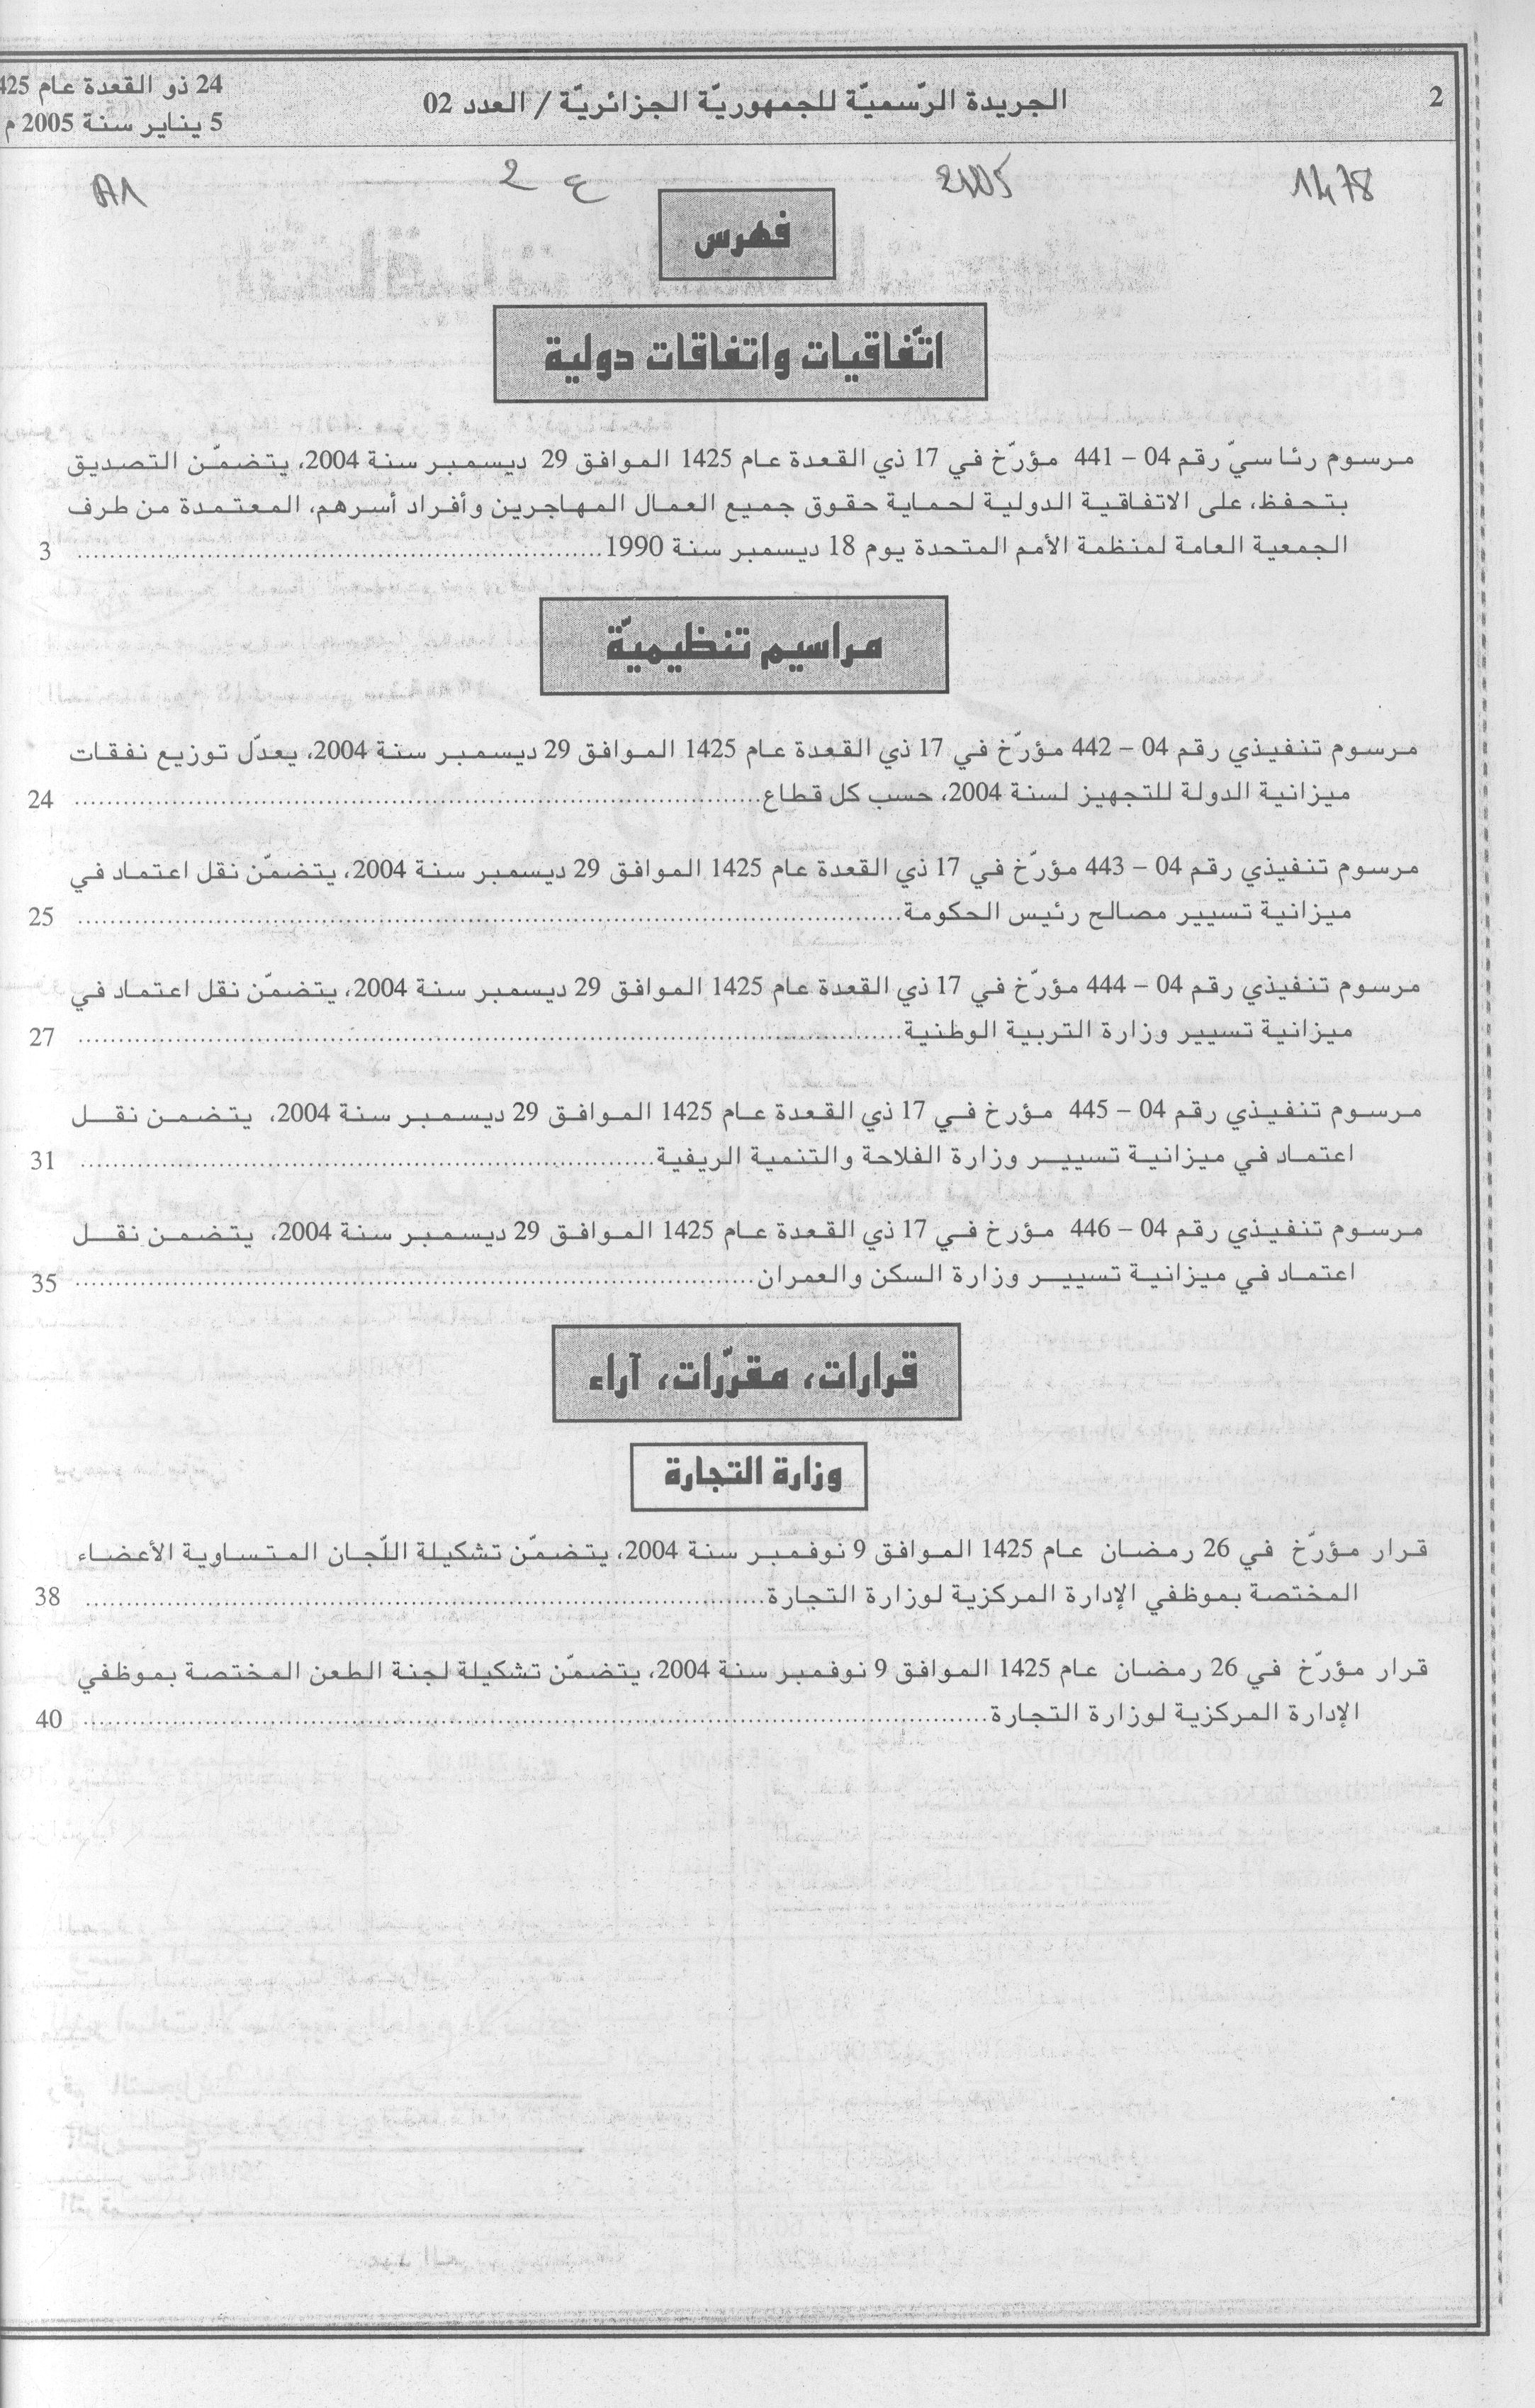 2
الجريدة الرّسميّة للجمهوريّة الجزائريّة / العدد 02
24 ذو القعدة عام 425
5 يناير سنة 2005 م
1478
2 ع
A1
فهرس
اتّفاقيات واتفاقات دولية
مرسوم رئاسيّ رقم 04 – 441 مؤرّخ في 17 ذي القعدة عام 1425 الموافق 29 ديسمبر سنة 2004، يتضمّن التصديق
بتحفظ، على الاتفاقية الدولية لحماية حقوق جميع العمال المهاجرين وأفراد أسرهم، المعتمدة من طرف
الجمعية العامة لمنظمة الأمم المتحدة يوم 18 ديسمبر سنة 1990 ........ 3
مراسيم تنظيميّة
مرسوم تنفيذي رقم 04 – 442 مؤرّخ في 17 ذي القعدة عام 1425 الموافق 29 ديسمبر سنة 2004، يعدّل توزيع نفقات
ميزانية الدولة للتجهيز لسنة 2004، حسب كل قطاع ........ 24
مرسوم تنفيذي رقم 04 – 443 مؤرّخ في 17 ذي القعدة عام 1425 الموافق 29 ديسمبر سنة 2004، يتضمّن نقل اعتماد في
ميزانية تسيير مصالح رئيس الحكومة ........ 25
مرسوم تنفيذي رقم 04 – 444 مؤرّخ في 17 ذي القعدة عام 1425 الموافق 29 ديسمبر سنة 2004، يتضمّن نقل اعتماد في
ميزانية تسيير وزارة التربية الوطنية ........ 27
مرسوم تنفيذي رقم 04 – 445 مؤرخ في 17 ذي القعدة عام 1425 الموافق 29 ديسمبر سنة 2004، يتضمن نقل
اعتماد في ميزانية تسيير وزارة الفلاحة والتنمية الريفية ........ 31
مرسوم تنفيذي رقم 04 – 446 مؤرخ في 17 ذي القعدة عام 1425 الموافق 29 ديسمبر سنة 2004، يتضمن نقل
اعتماد في ميزانية تسيير وزارة السكن والعمران ........ 35
قرارات، مقرّرات، آراء
وزارة التجارة
قرار مؤرّخ في 26 رمضان عام 1425 الموافق 9 نوفمبر سنة 2004، يتضمّن تشكيلة اللّجان المتساوية الأعضاء
المختصة بموظفي الإدارة المركزية لوزارة التجارة ........ 38
قرار مؤرّخ في 26 رمضان عام 1425 الموافق 9 نوفمبر سنة 2004، يتضمّن تشكيلة لجنة الطعن المختصة بموظفي
الإدارة المركزية لوزارة التجارة ........ 40